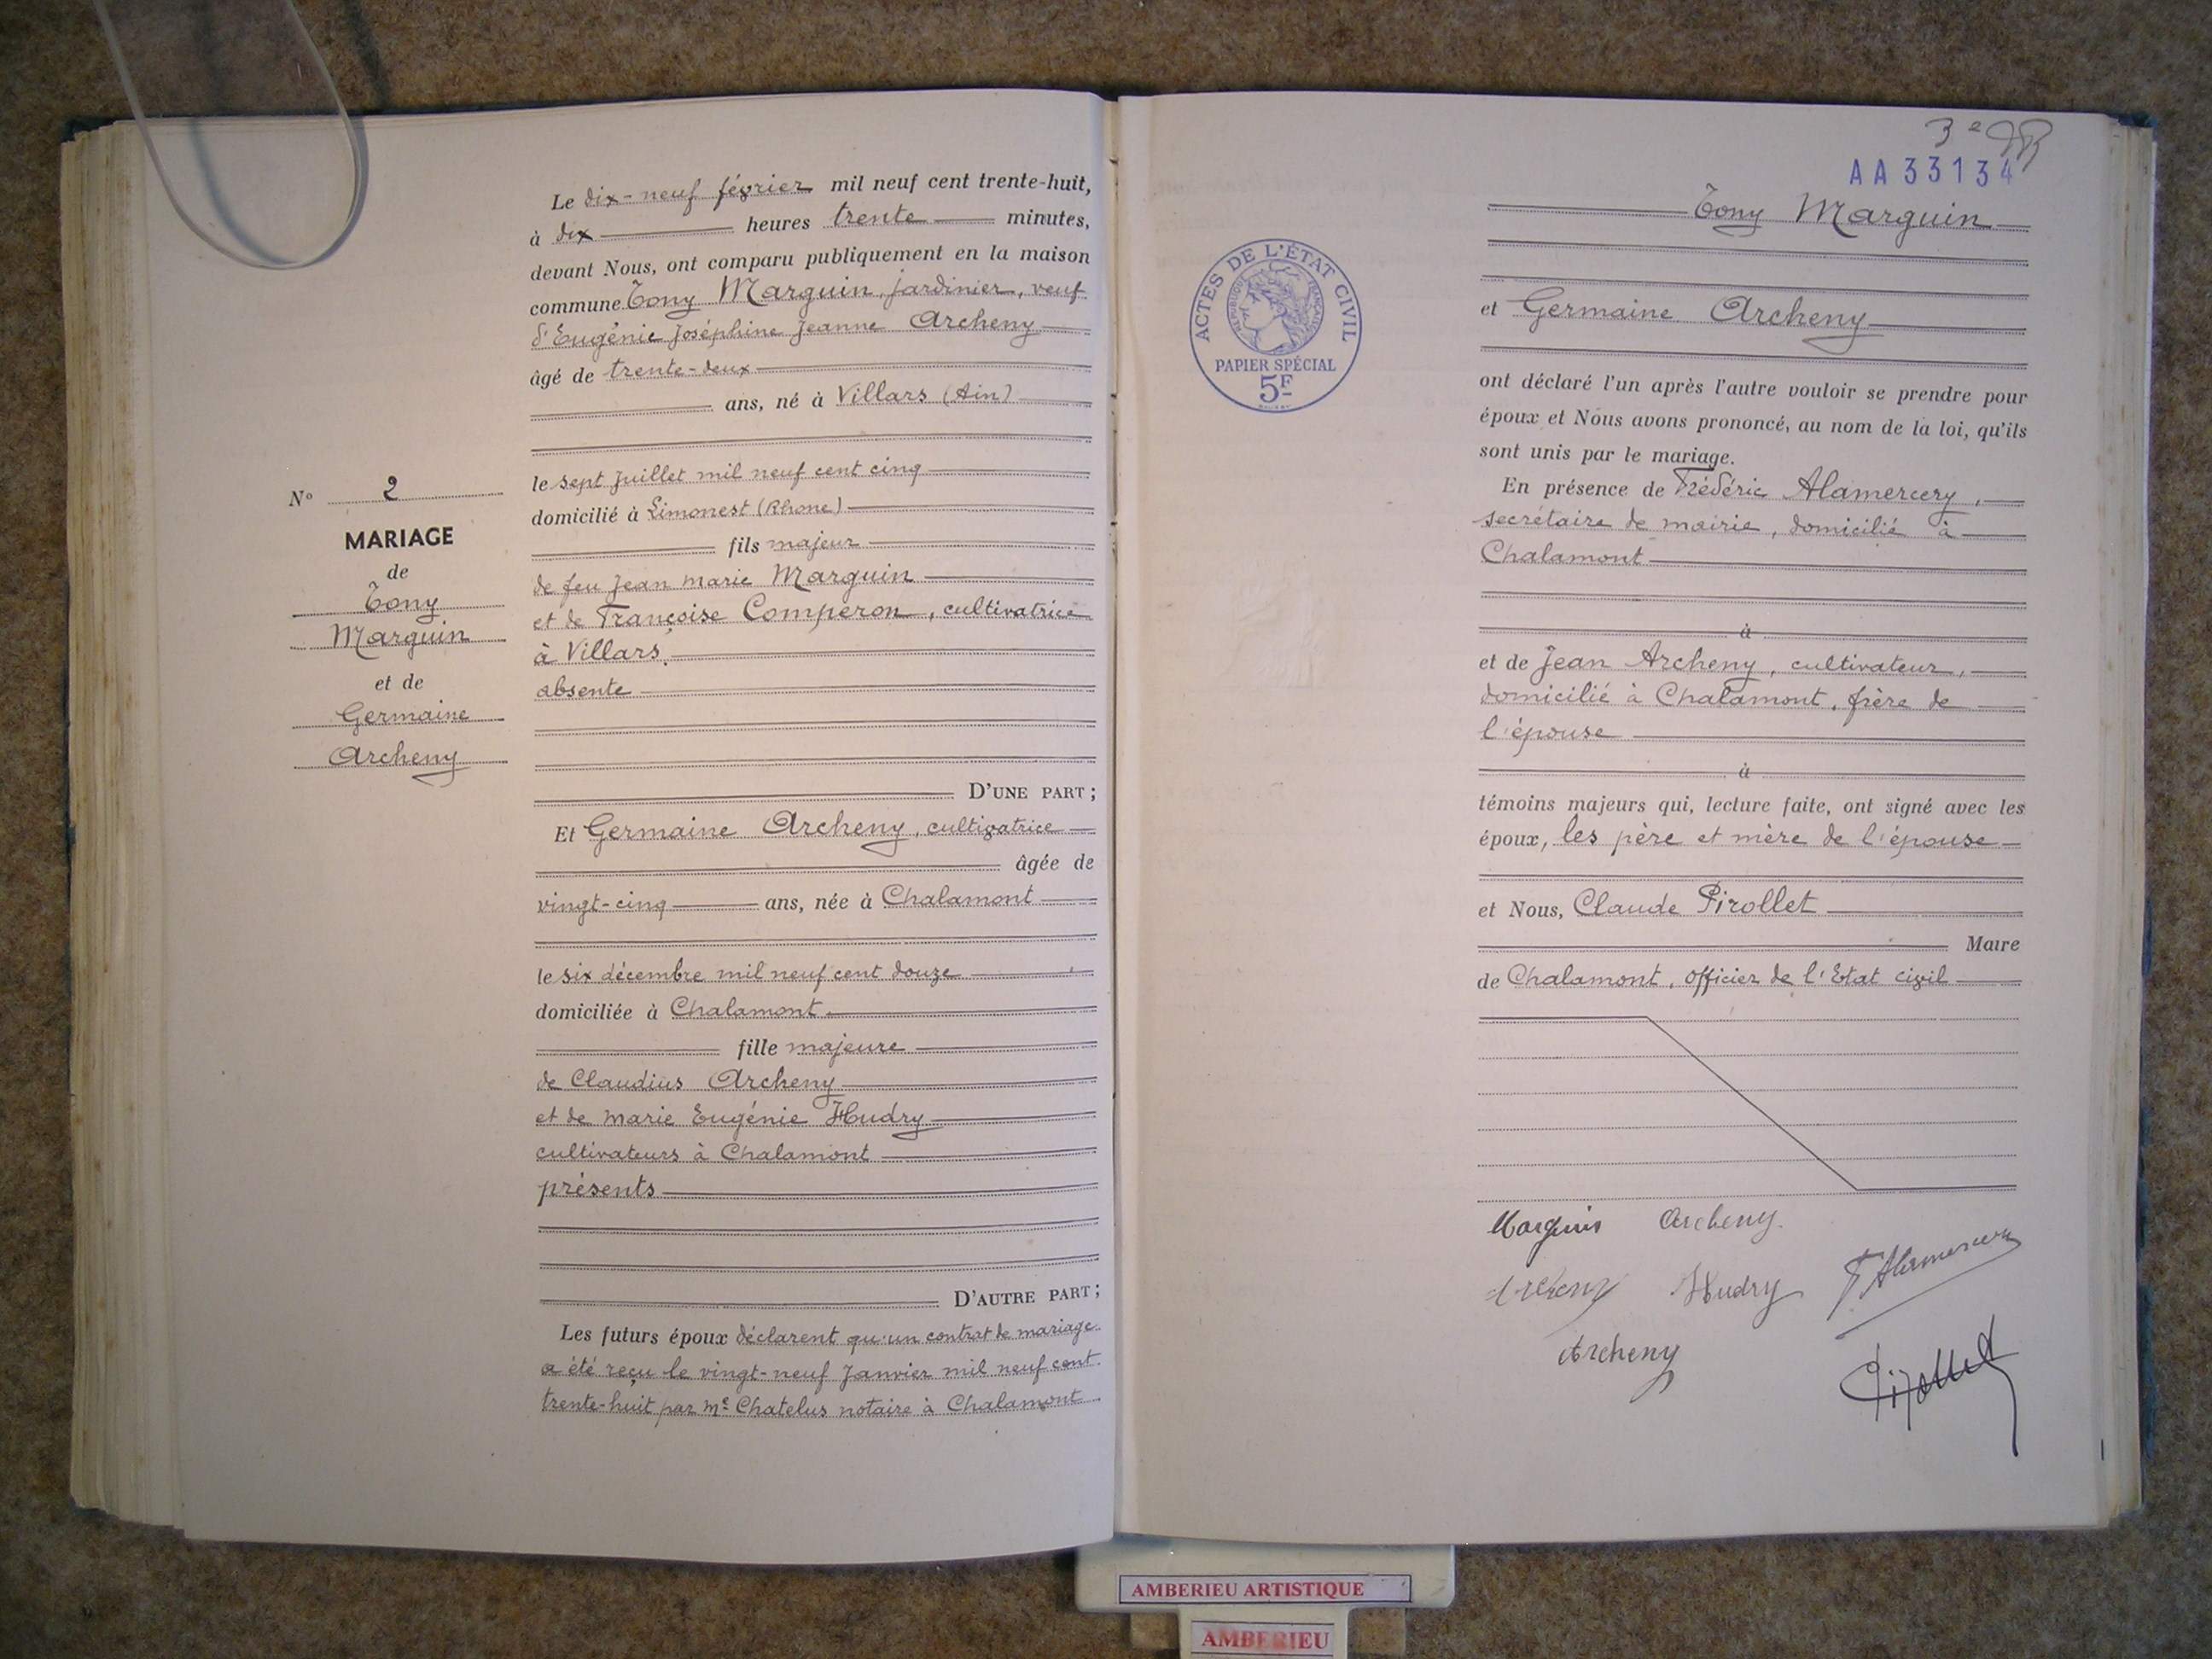 Le dix-neuf février mil neuf cent trente-huit,
à dix heures trente minutes,
devant Nous, ont comparu publiquement en la maison
commune Tony Marguin, jardinier, veuf
d'Eugénie Joséphine Jeanne Archeny
âgé de trente-deux
ans, né à Villars (Ain)
le sept juillet mil neuf cent cinq
domicilié à Limonest (Rhone)
fils majeur
de feu Jean Marie Marguin
et de Françoise Comperon, cultivatrice
à Villars
absente
D'UNE PART ;
Et Germaine Archeny, cultivatrice
âgée de
vingt-cinq ans, née à Chalamont
le six décembre mil neuf cent douze
domiciliée à Chalamont
fille majeure
de Claudius Archeny
et de Marie Eugénie Hudry
cultivateurs à Chalamont
présents
D'AUTRE PART ;
Les futurs époux déclarent qu'un contrat de mariage
a été reçu le vingt-neuf Janvier mil neuf cent
trente-huit par Me Chatelus notaire à Chalamont
N° 2
MARIAGE
de
Tony
Marguin
et de
Germaine
Archeny
3e
AA33134
ACTES DE L'ÉTAT CIVIL
RÉPUBLIQUE FRANÇAISE
PAPIER SPÉCIAL
5F
Tony Marguin
et Germaine Archeny
ont déclaré l'un après l'autre vouloir se prendre pour
époux et Nous avons prononcé, au nom de la loi, qu'ils
sont unis par le mariage.
En présence de Frédéric Alamercery,
secrétaire de mairie, domicilié à
Chalamont
à
et de Jean Archeny, cultivateur,
domicilié à Chalamont, frère de
l'épouse
à
témoins majeurs qui, lecture faite, ont signé avec les
époux, les père et mère de l'épouse
et Nous, Claude Pirollet
Maire
de Chalamont, officier de l'Etat civil
Marguin Archeny
Archeny Hudry F Alamercery
Archeny
Pirollet
AMBERIEU ARTISTIQUE
AMBERIEU